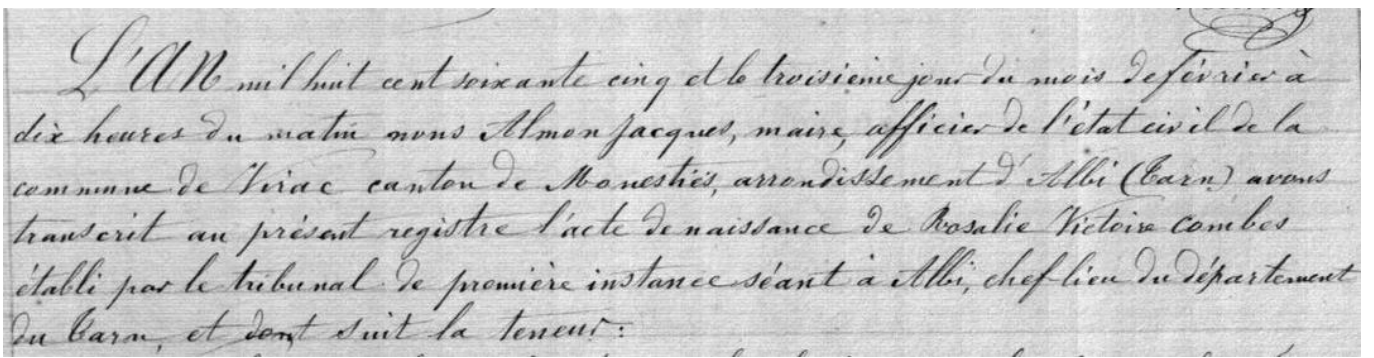 L'AN mil huit cent soixante cinq et le troisième jour du mois de février à
dix heures du matin nous Almon Jacques, maire, officier de l'état civil de la
commune de Virac canton de Monestiés, arrondissement d'Albi (Tarn) avons
transcrit au présent registre l'acte de naissance de Rosalie Victoire Combes
établi par le tribunal de première instance séant à Albi, chef-lieu du département
du Tarn, et dont suit la teneur: